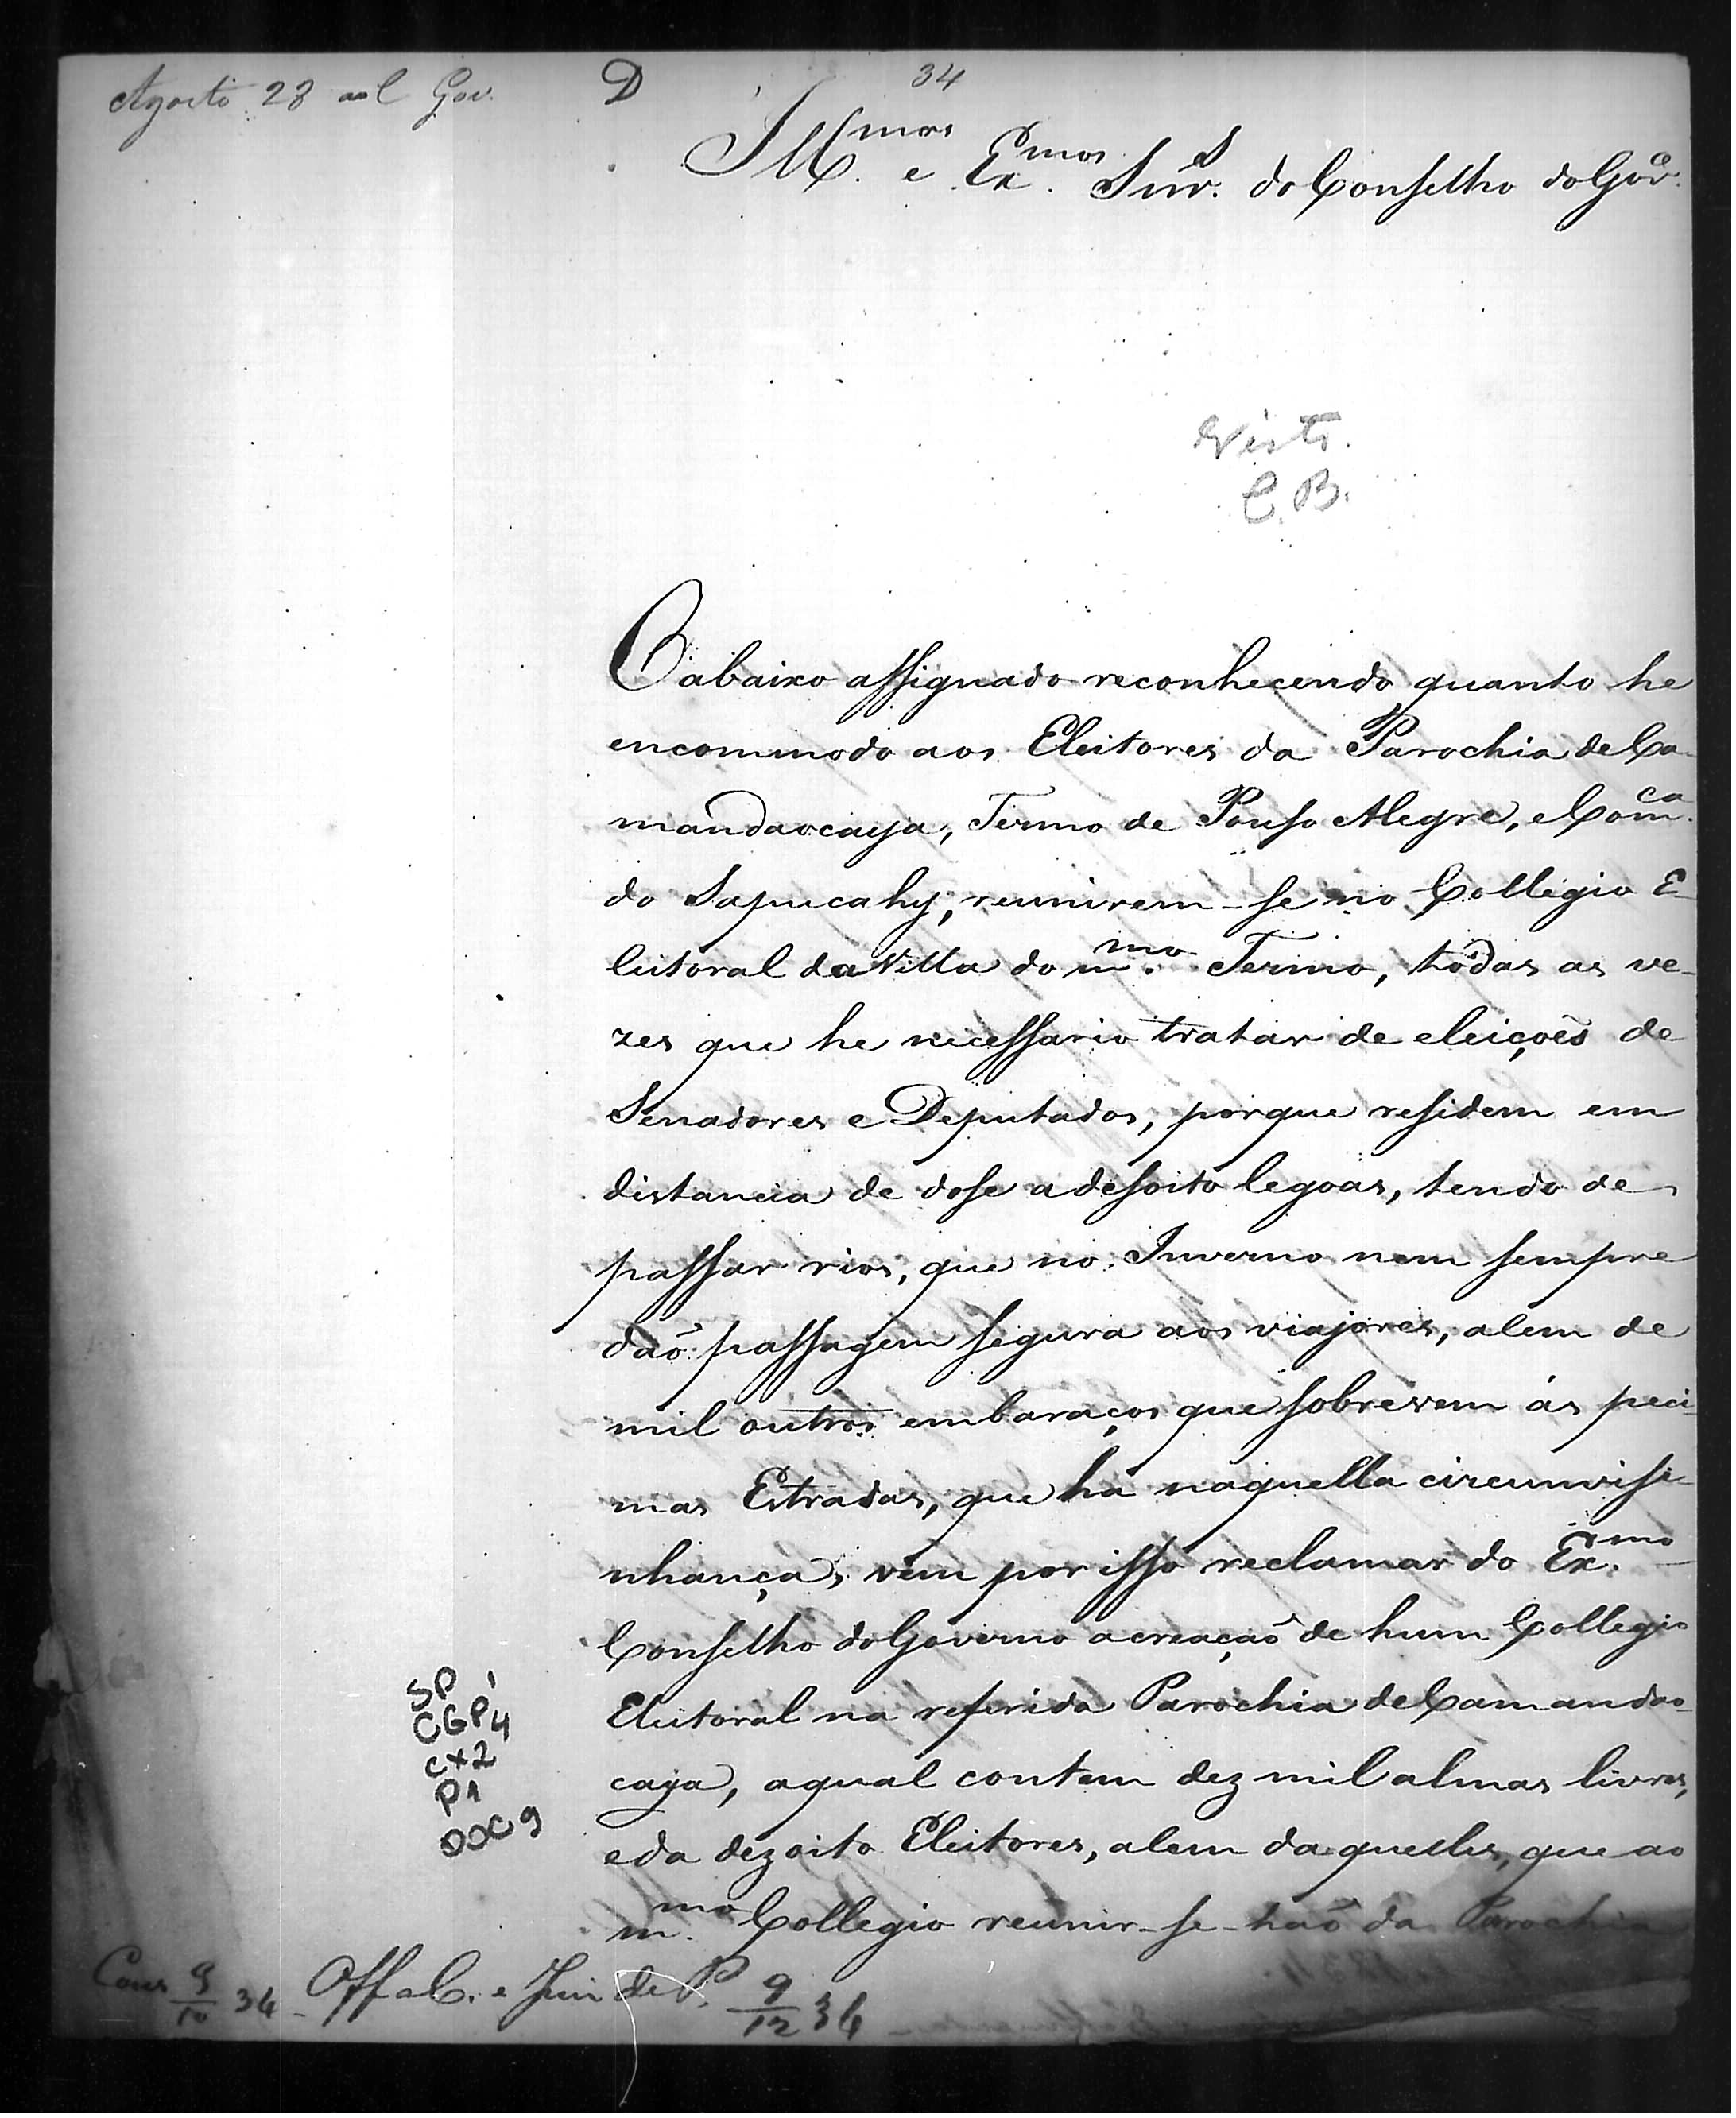 Agosto 28 ao C Gov. D 34
Ill.mos e Ex.mos Snr.s do Conselho do Gov.o
Visto.
C. B.
O abaixo assignado reconhecendo quanto he
encommodo aos Eleitores da Parochia de Ca-
mandaocaya, Termo de Pouso Alegre, e Com.ca
do Sapucahy, reunirem-se no Collegio E-
leitoral da Villa do m.mo Termo, todas as ve-
zes que he necessario tratar de eleiçoẽs de
Senadores e Deputados, porque residem em
distancia de dose a desoito legoas, tendo de
passar rios, que no Inverno nem sempre
daõ passagem segura aos viajores, alem de
mil outros embaraços que sobrevem ás peci-
mas Estradas, que há naquella circumvisi-
nhança, vem por isso reclamar do Ex.mo
Conselho do Governo a creaçaõ de hum Collegio
Eleitoral na referida Parochia de Camandao-
caya, a qual contem dez mil almas livres,
e da dezoito Eleitores, alem daquelles, que ao
m.mo Collegio reunir-se-haõ da Parochia
SP 1
CGP 4
CX2
P1
DOC 9
Cons 9/10 34 Off a C. e Juiz de P. 9/12 34